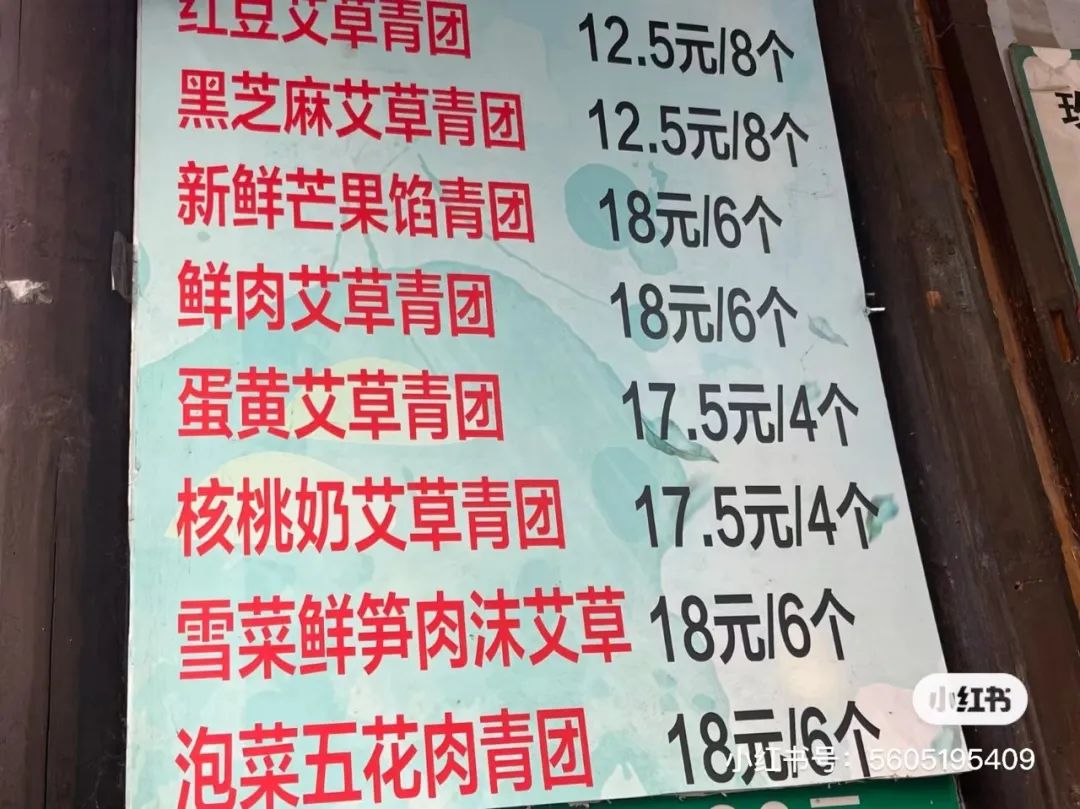 红豆艾草青团 12.5元/8个
黑芝麻艾草青团 12.5元/8个
新鲜芒果馅青团 18元/6个
鲜肉艾草青团 18元/6个
蛋黄艾草青团 17.5元/4个
核桃奶艾草青团 17.5元/4个
雪菜鲜笋肉沫艾草 18元/6个
泡菜五花肉青团 18元/6个
小红书
小红书号：5605195409